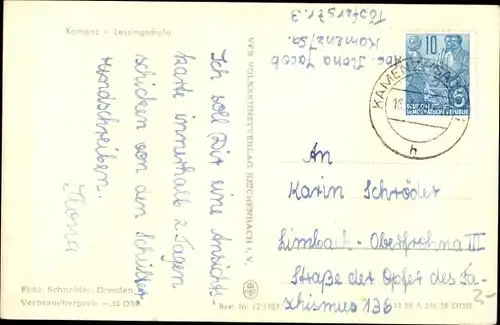 Kamenz - Lessingschule
Ich soll Dir eine Ansichts-
karte innerhalb 2 Tagen
schicken von den Schüler
Rundschreiben.
Ilona
Foto: Schneider, Dresden
Verbraucherpreis —.15 DM
VEB VOLKSKUNSTVERLAG REICHENBACH i. V.
Best. Nr. 12/1757
Abs. Ilona Jacob
Kamenz/Sa.
Töpferstr. 3
10
DEUTSCHE
DEMOKRATISCHE REPUBLIK
KAMENZ (SACHS)
h
An
Karin Schröder
Limbach-Oberfrohna III
Straße der Opfer des Fa-
schismus 136
2-